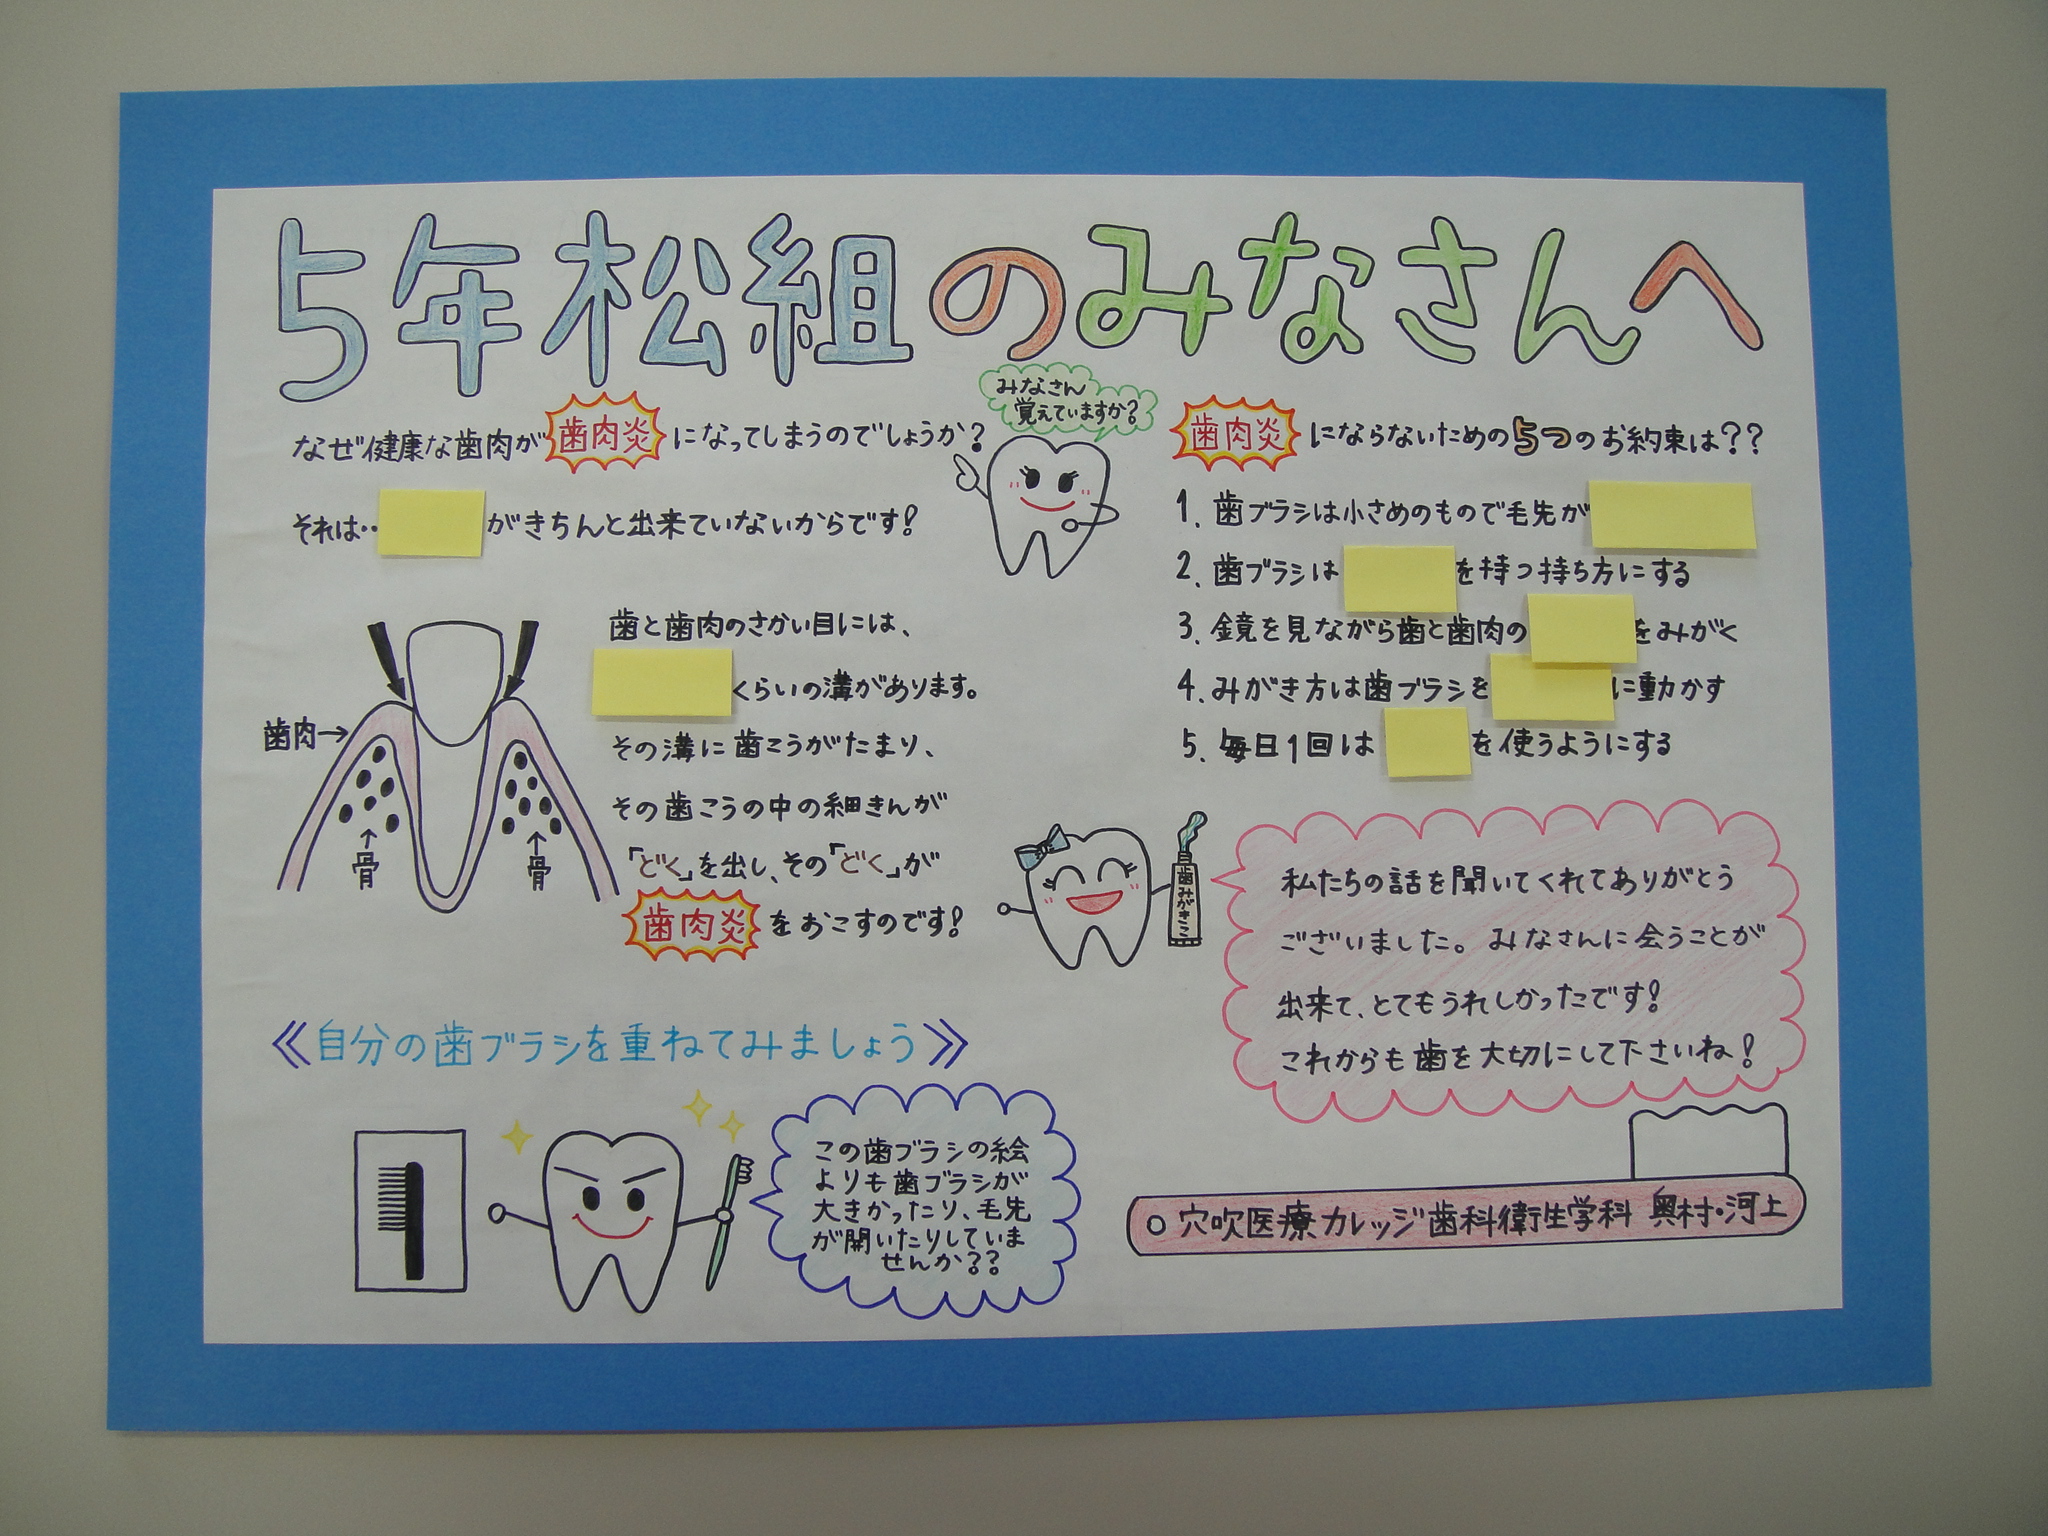 5年松組のみなさんへ
なぜ健康な歯肉が歯肉炎になってしまうのでしょうか?
それは‥
がきちんと出来ていないからです!
みなさん
覚えていますか?
歯と歯肉のさかい目には、
くらいの溝があります。
その溝に歯こうがたまり、
その歯こうの中の細きんが
「どく」を出し、その「どく」が
歯肉炎をおこすのです!
歯肉→
↑
骨
↑
骨
歯肉炎にならないための5つのお約束は??
1. 歯ブラシは小さめのもので毛先が
2. 歯ブラシは
を持つ持ち方にする
3. 鏡を見ながら歯と歯肉の
をみがく
4. みがき方は歯ブラシを
に動かす
5. 毎日1回は
を使うようにする
歯みがきこ
私たちの話を聞いてくれてありがとう
ございました。みなさんに会うことが
出来て、とてもうれしかったです!
これからも歯を大切にして下さいね!
≪自分の歯ブラシを重ねてみましょう≫
この歯ブラシの絵
よりも歯ブラシが
大きかったり、毛先
が開いたりしていま
せんか??
穴吹医療カレッジ歯科衛生学科 奥村・河上